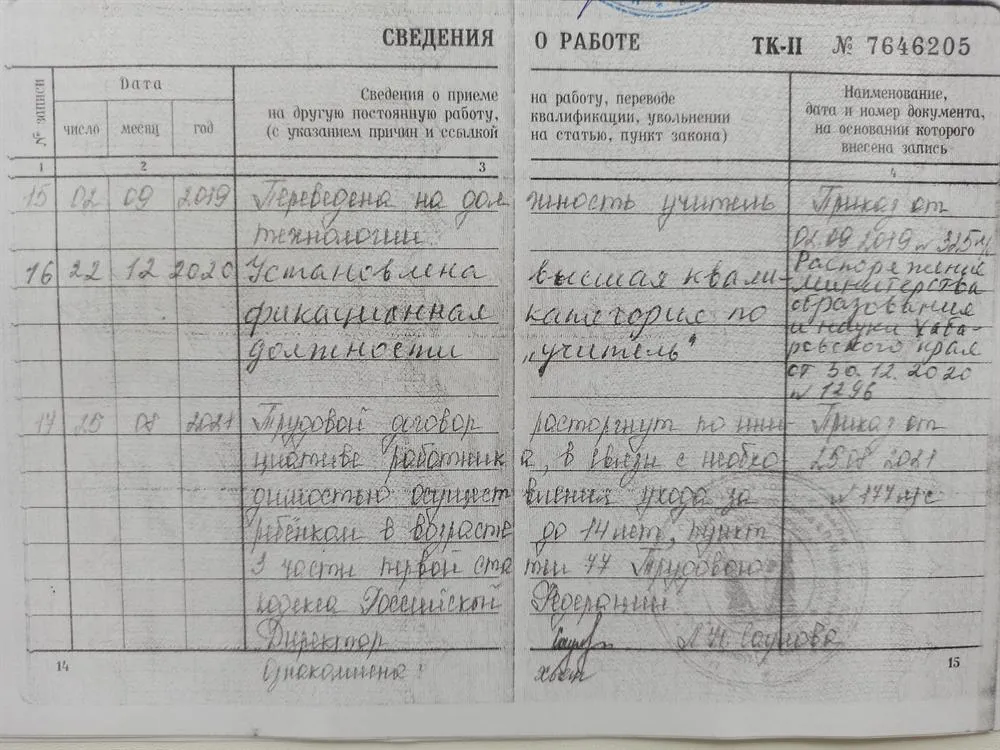 СВЕДЕНИЯ О РАБОТЕ ТК-II № 7646205
№ записи
Дата
число месяц год
Сведения о приеме на работу, переводе
на другую постоянную работу, квалификации, увольнении
(с указанием причин и ссылкой на статью, пункт закона)
Наименование,
дата и номер документа,
на основании которого
внесена запись
1 2 3 4
15 02 09 2019 Переведена на дол жность учитель Приказ от
технологии 02.09.2019 № 325
16 22 12 2020 Установлена высшая квали- Распоряжение
министерства
фикационная категория по образования
и науки Хаба-
должности „учитель" ровского края
от 30.12.2020
№ 1296
17 25 08 2021 Трудовой договор расторгнут по ини- Приказ от
циативе работник а, в связи с необхо 25.08.2021
димостью осущест вления ухода за № 177 л/с
ребёнком в возрасте до 14 лет, пункт
3 части первой ста тьи 77 Трудового
кодекса Российской Федерации
Директор Л.Н. Саулова
Ознакомлена:
14 15